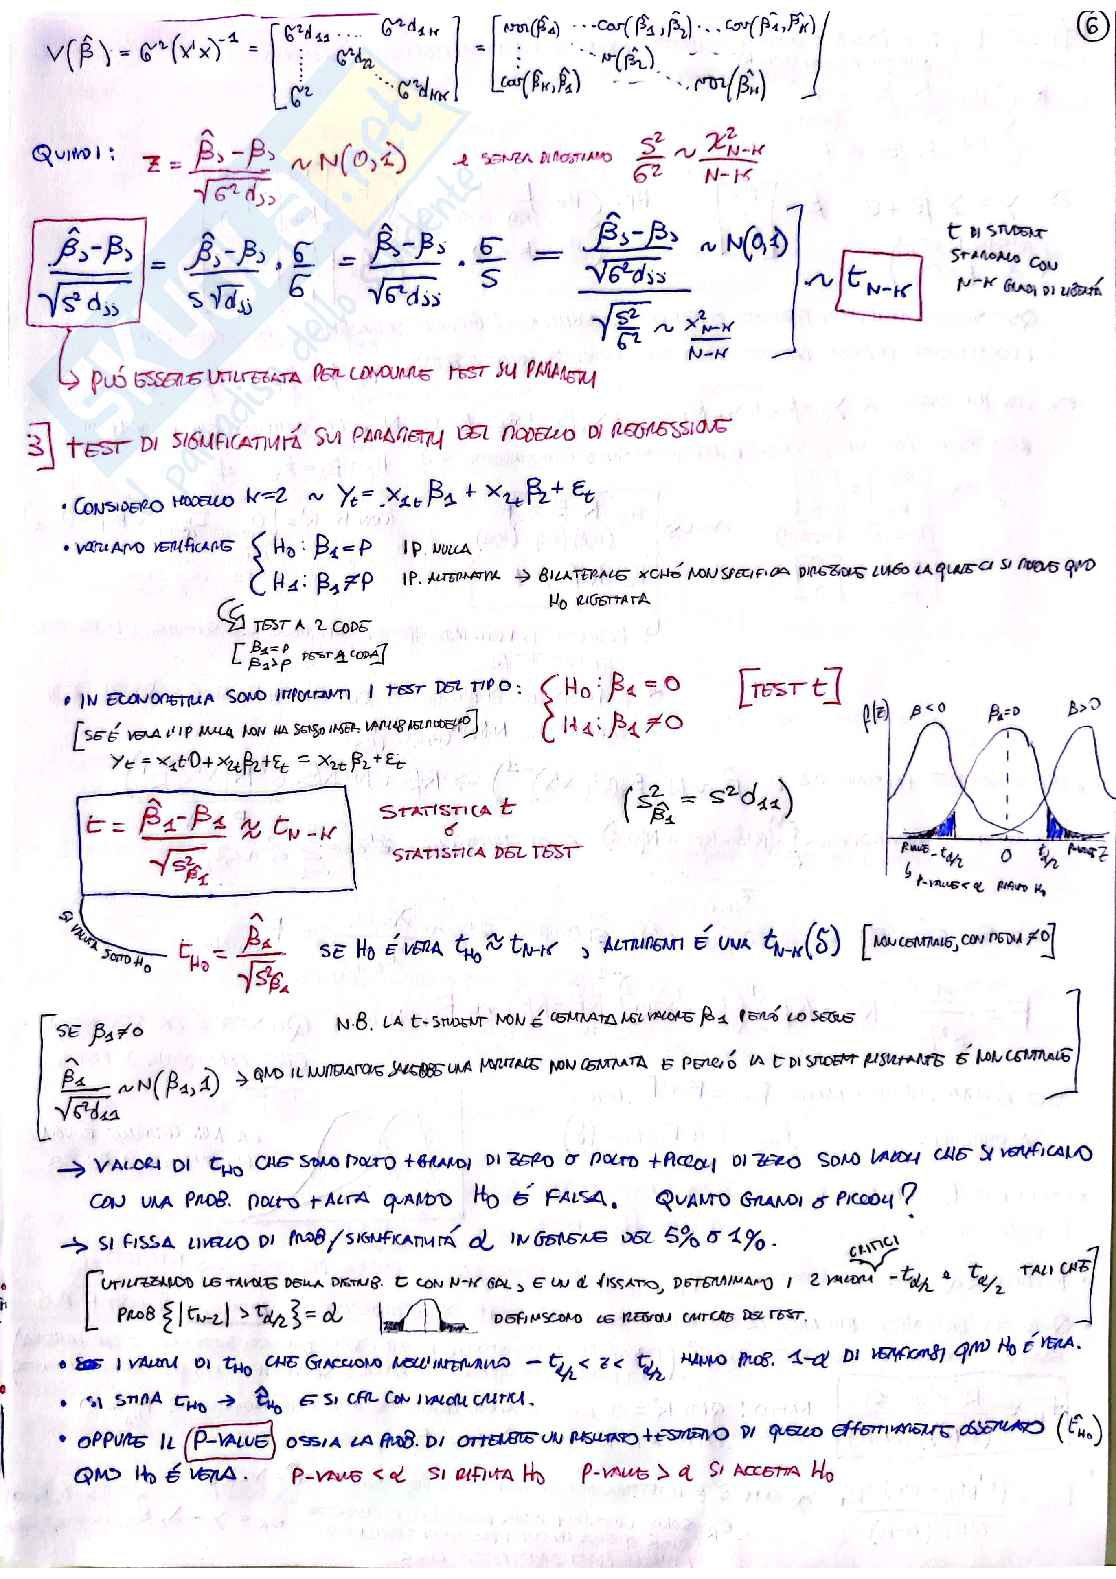 6
V(β̂) = σ²(X'X)⁻¹ = [σ²d₁₁ .... σ²d₁ₖ ⋮ σ²d₂₂ ... σ² σ²dₖₖ] = [var(β̂₁) ... cov(β̂₁,β̂₂) ... cov(β̂₁,β̂ₖ) ⋮ v(β̂₂) cov(β̂ₖ,β̂₁) ... var(β̂ₖ)]
QUINDI: Z = (β̂ⱼ-βⱼ)/√(σ²dⱼⱼ) ~ N(0,1) E SENZA DIMOSTRIAMO S²/σ² ~ χ²N-K/N-K
(β̂ⱼ-βⱼ)/√(S²dⱼⱼ) = (β̂ⱼ-βⱼ)/(S√dⱼⱼ) · σ/σ = (β̂ⱼ-βⱼ)/√(σ²dⱼⱼ) · σ/S = [(β̂ⱼ-βⱼ)/√(σ²dⱼⱼ) ~ N(0,1)] / [√(S²/σ²) ~ χ²N-K/N-K] ~ tN-K
t DI STUDENT
STANDARD CON
N-K GRADI DI LIBERTÁ
PUÓ ESSERE UTILIZZATA PER CONDURRE TEST SUI PARAMETRI
3] TEST DI SIGNIFICATIVITÁ SUI PARAMETRI DEL MODELLO DI REGRESSIONE
• CONSIDERO MODELLO K=2 ~ Yt = X1t β₁ + X2t β₂ + εt
• VOGLIAMO VERIFICARE { H₀: β₁ = P IP. NULLA
H₁: β₁ ≠ P IP. ALTERNATIVA → BILATERALE XCHÉ NON SPECIFICA DIREZIONE LUNGO LA QUALE CI SI MUOVE QND
H₀ RIGETTATA
TEST A 2 CODE
[β₁=P β₁>P TEST 1 CODA]
• IN ECONOMETRIA SONO IMPORTANTI I TEST DEL TIPO: { H₀: β₁ = 0 [TEST t]
H₁: β₁ ≠ 0
[SE É VERA L'IP NULLA NON HA SENSO INSER. VARIAB NEL MODELLO]
Yt = X1t 0 + X2t β₂ + εt = X2t β₂ + εt
f(z) β<0 β₁=0 β>0
P-VALUE -tα/2 0 tα/2 P-VALUE Z
P-VALUE < α RIFIUTO H₀
t = (β̂₁-β₁)/√(S²β̂₁) ≈ tN-K STATISTICA t (S²β̂₁ = S²d₁₁)
O
STATISTICA DEL TEST
SI VALUTA SOTTO H₀
tH₀ = β̂₁/√(S²β̂₁) SE H₀ É VERA tH₀ ≈ tN-K , ALTRIMENTI É UNA tN-K(δ) [NON CENTRALE, CON MEDIA ≠0]
[SE β₁≠0 N.B. LA t-STUDENT NON É CENTRATA NEL VALORE β₁ PERÓ LO SEGUE
β̂₁/√(σ²d₁₁) ~ N(β₁,1) → QND IL NUMERATORE SAREBBE UNA NORMALE NON CENTRATA E PERCIÓ LA t DI STUDENT RISULTANTE É NON CENTRALE]
→ VALORI DI tH₀ CHE SONO MOLTO + GRANDI DI ZERO O MOLTO + PICCOLI DI ZERO SONO VALORI CHE SI VERIFICANO
CON UNA PROB. MOLTO + ALTA QUANDO H₀ É FALSA. QUANTO GRANDI O PICCOLI?
→ SI FISSA LIVELLO DI PROB/SIGNIFICATIVITÁ α IN GENERE DEL 5% O 1%.
CRITICI
[UTILIZZANDO LE TAVOLE DELLA DISTRIB. t CON N-K GDL, E UN α FISSATO, DETERMINIAMO I 2 VALORI -tα/2 e tα/2 TALI CHE
PROB{|tN-2| > tα/2} = α DEFINISCONO LE REGIONI CRITICHE DEL TEST.]
• I VALORI DI tH₀ CHE GIACCIONO NELL'INTERVALLO -tα/2 < z < tα/2 HANNO PROB. 1-α DI VERIFICARSI QND H₀ É VERA.
• SI STIMA tH₀ → t̂H₀ E SI CFR CON I VALORI CRITICI.
• OPPURE IL P-VALUE OSSIA LA PROB. DI OTTENERE UN RISULTATO + ESTREMO DI QUELLO EFFETTIVAMENTE OSSERVATO (t̂H₀)
QND H₀ É VERA. P-VALUE < α SI RIFIUTA H₀ P-VALUE > α SI ACCETTA H₀